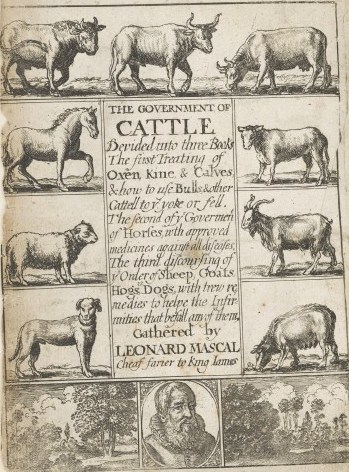 THE GOVERNMENT OF
CATTLE
Devided into three Books
The first Treating of
Oxen Kine, & Calves
& how to use Bulls & other
Cattell to yᵉ yoke or fell.
The second of yᵉ Governmeñ
of Horses, wth approved
medicines against all diseases.
The third discoursing of
yᵉ Order of Sheep, Goats
Hogs, Dogs, with trew re
medies to helpe the Infir
mities that befall any of them,
Gathered by
LEONARD MASCAL
cheaf farier to King James